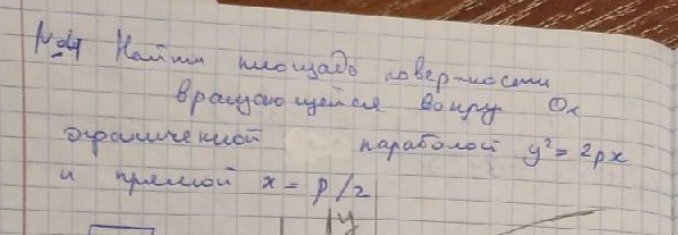 №4 Найти площадь поверхности
вращающейся вокруг Ox
ограниченной параболой y² = 2px
и прямой x = p/2
y